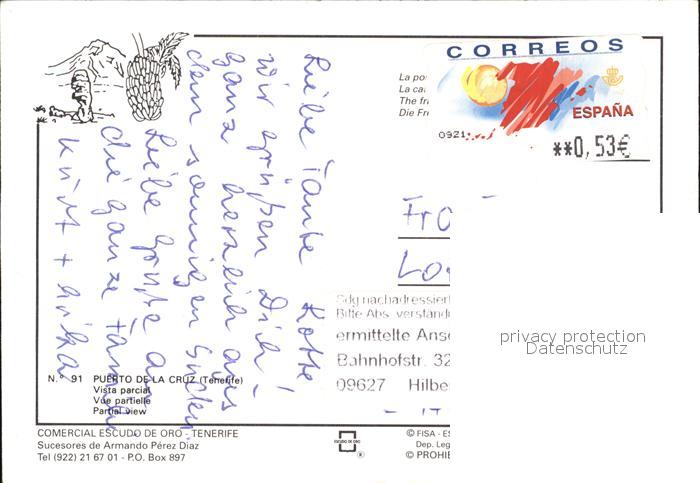 CORREOS
ESPAÑA
0921
**0,53€
La po
La ca
The fr
Die Fr
Liebe Tante Lotte
wir grüßen Dich
ganz herzlich aus
dem sonnigen Süden
Liebe Grüße an
die ganze Familie
Kurt + Anka
Fra
Lo
Sdg nachadressiert
Bitte Abs. verständ
ermittelte Ansc
Bahnhofstr. 32
09627 Hilbe
privacy protection
Datenschutz
N.º 91 PUERTO DE LA CRUZ (Tenerife)
Vista parcial
Vue partielle
Partial view
COMERCIAL ESCUDO DE ORO - TENERIFE
Sucesores de Armando Pérez Diaz
Tel (922) 21 67 01 - P.O. Box 897
ESCUDO DE ORO
®
© FISA - ES
Dep. Leg
© PROHIB